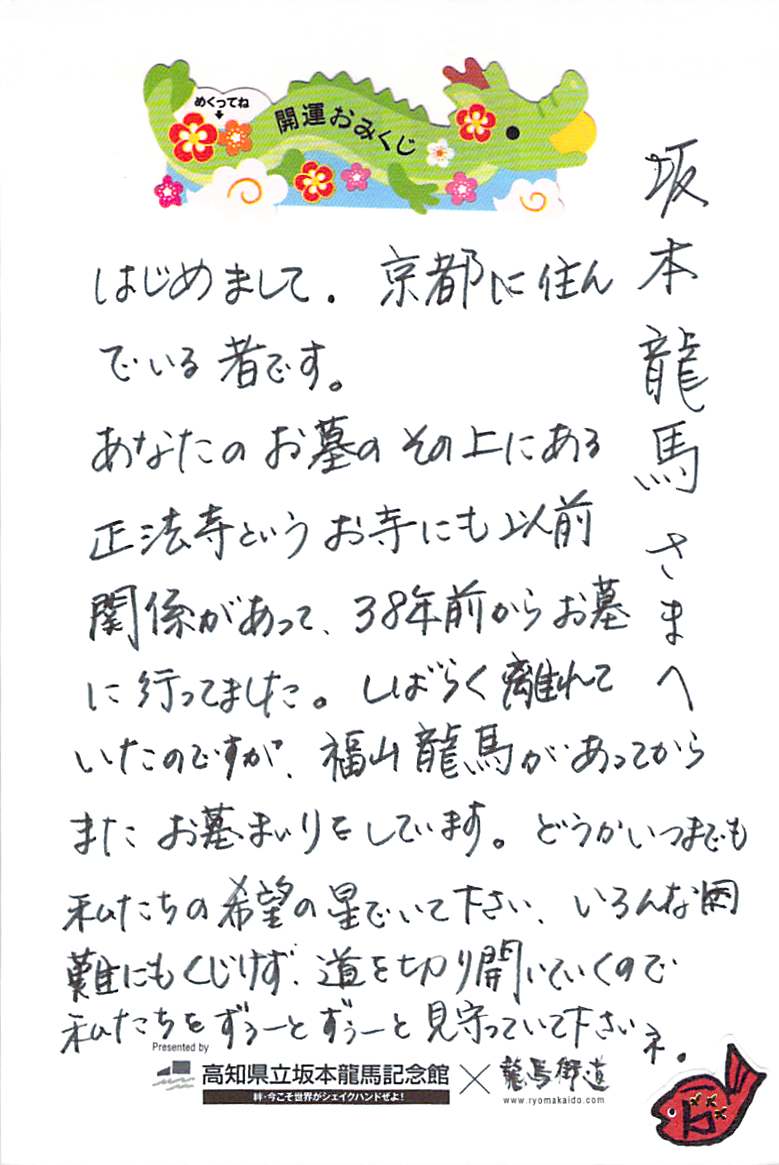 めくってね
開運おみくじ
坂本龍馬さまへ
はじめまして。京都に住ん
でいる者です。
あなたのお墓のその上にある
正法寺というお寺にも以前
関係があって、38年前からお墓
に行ってました。しばらく離れて
いたのですが、福山龍馬があってから
またお墓まいりをしています。どうかいつまでも
私たちの希望の星でいて下さい、いろんな困
難にもくじけず、道を切り開いていくので
私たちをずぅーとずぅーと見守っていて下さいネ。
Presented by
高知県立坂本龍馬記念館
絆・今こそ世界がシェイクハンドぜよ!
×
龍馬街道
www.ryomakaido.com